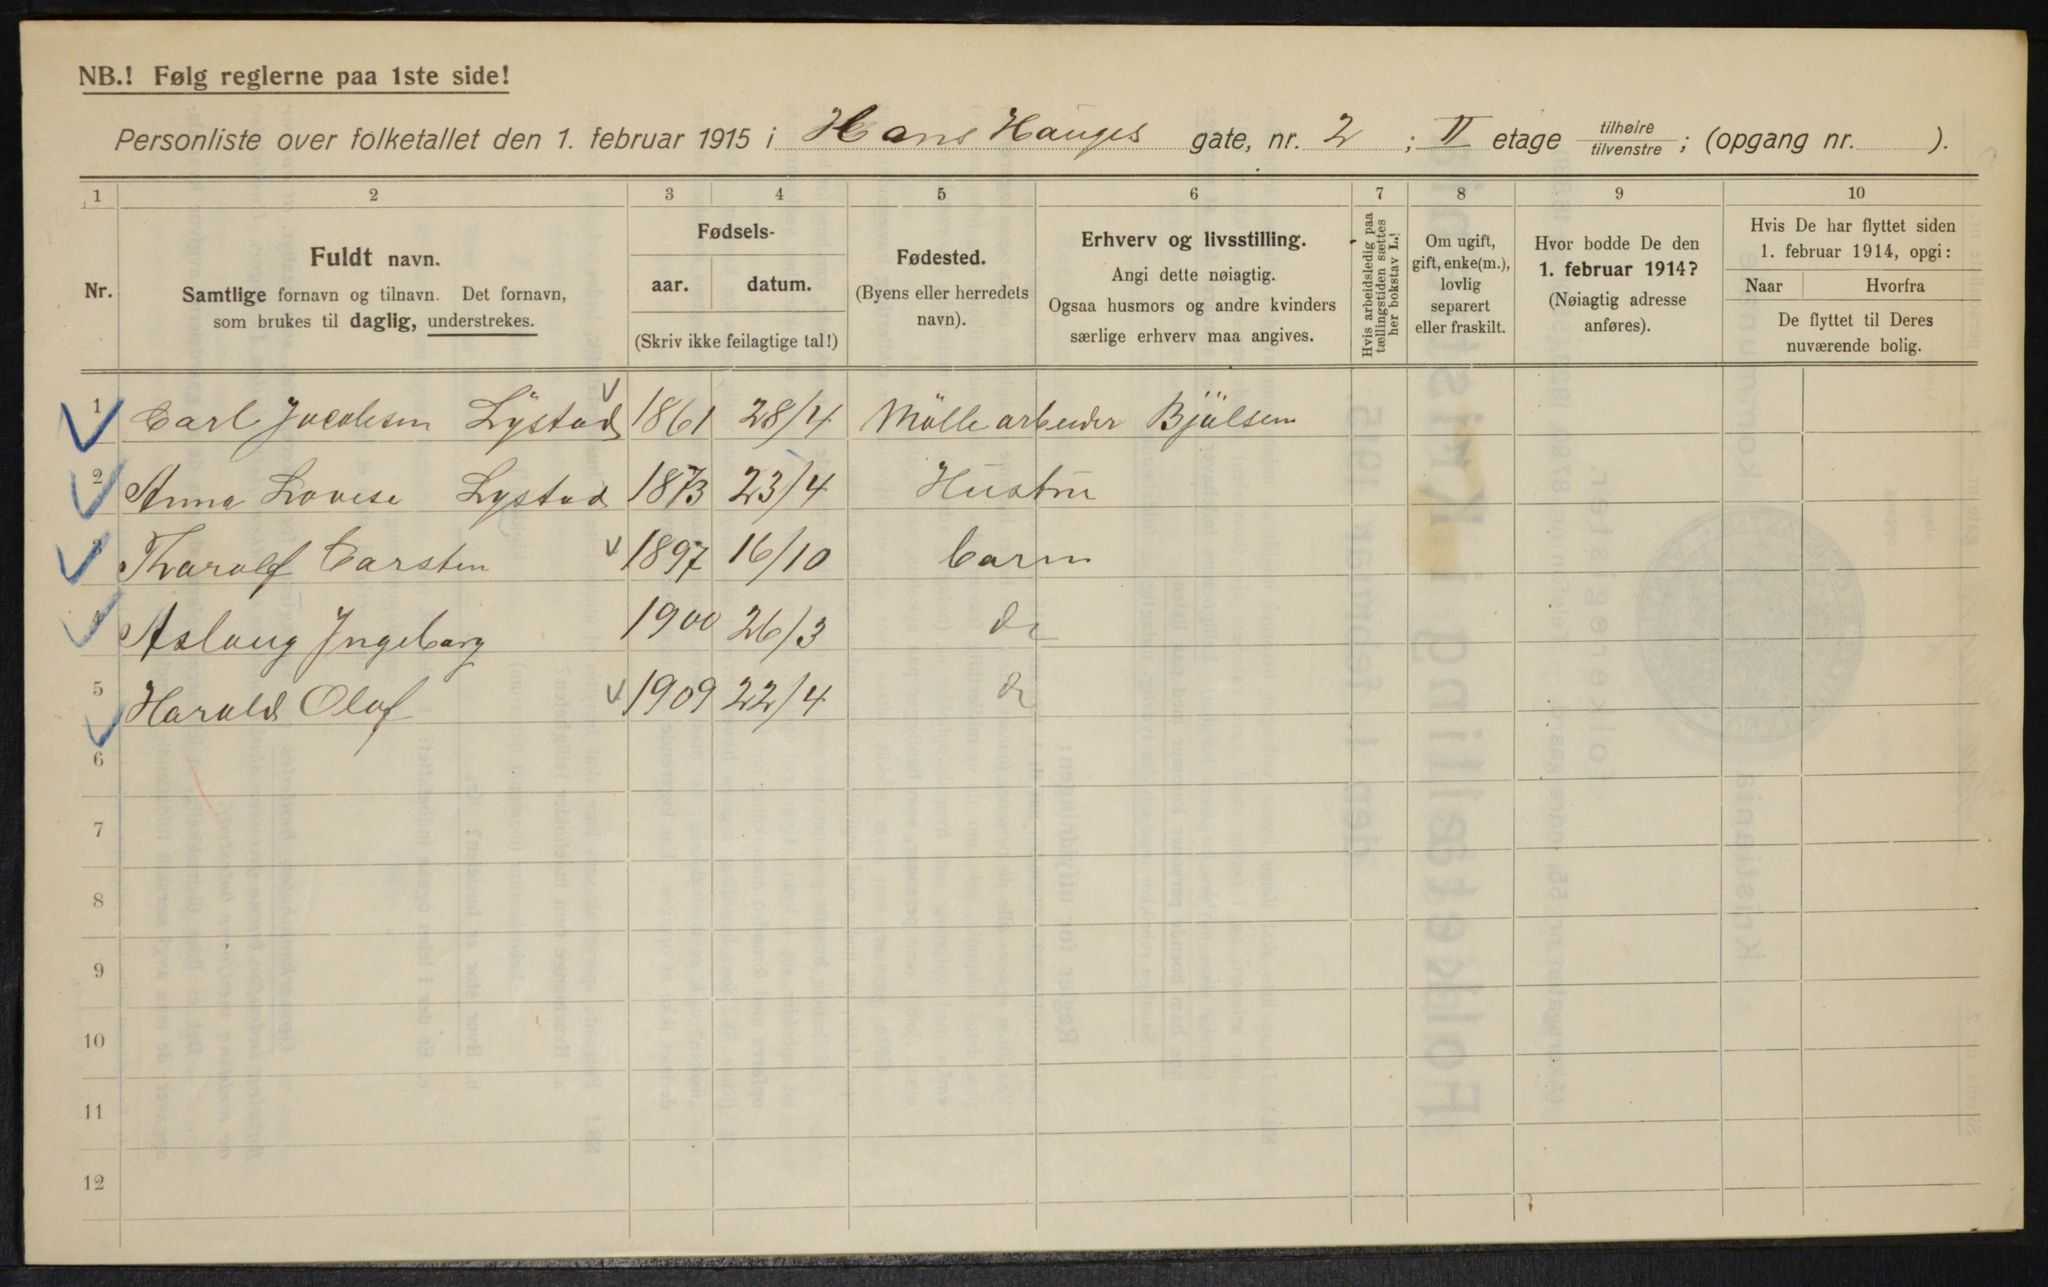 NB.! Følg reglerne paa 1ste side!
Personliste over folketallet den 1. februar 1915 i Hans Hauges gate, nr. 2 ; II etage tilhøire tilvenstre ; (opgang nr. ).
1 2 3 4 5 6 7 8 9 10
Nr.
Fuldt navn.
Samtlige fornavn og tilnavn. Det fornavn,
som brukes til daglig, understrekes.
Fødsels-
aar. datum.
(Skriv ikke feilagtige tal!)
Fødested.
(Byens eller herredets
navn).
Erhverv og livsstilling.
Angi dette nøiagtig.
Ogsaa husmors og andre kvinders
særlige erhverv maa angives.
Hvis arbeidsledig paa
tællingstiden sættes
her bokstav L.!
Om ugift,
gift, enke(m.),
lovlig
separert
eller fraskilt.
Hvor bodde De den
1. februar 1914?
(Nøiagtig adresse
anføres).
Hvis De har flyttet siden
1. februar 1914, opgi:
Naar Hvorfra
De flyttet til Deres
nuværende bolig.
1 Carl Jacobsen Lystad 1861 28/4 Möllearbeider Bjölsen
2 Anna Lovise Lystad 1873 23/4 Hustru
3 Thoralf Carsten 1897 16/10 barn
4 Aslaug Ingeborg 1900 26/3 do
5 Harald Olaf 1909 22/4 do
6
7
8
9
10
11
12